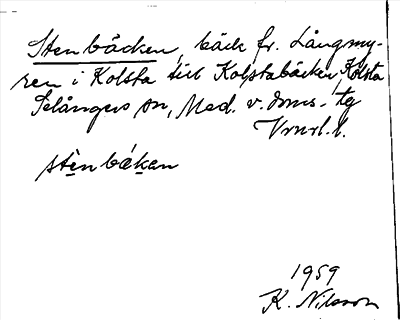 Stenbäcken, bäck fr. Långmy-
ren i Kolsta till Kolstabäcken, Kolsta
Selångers sn, Med. v. doms. tg
Vnrl. l.
stènbäkan
1959
K. Nilsson